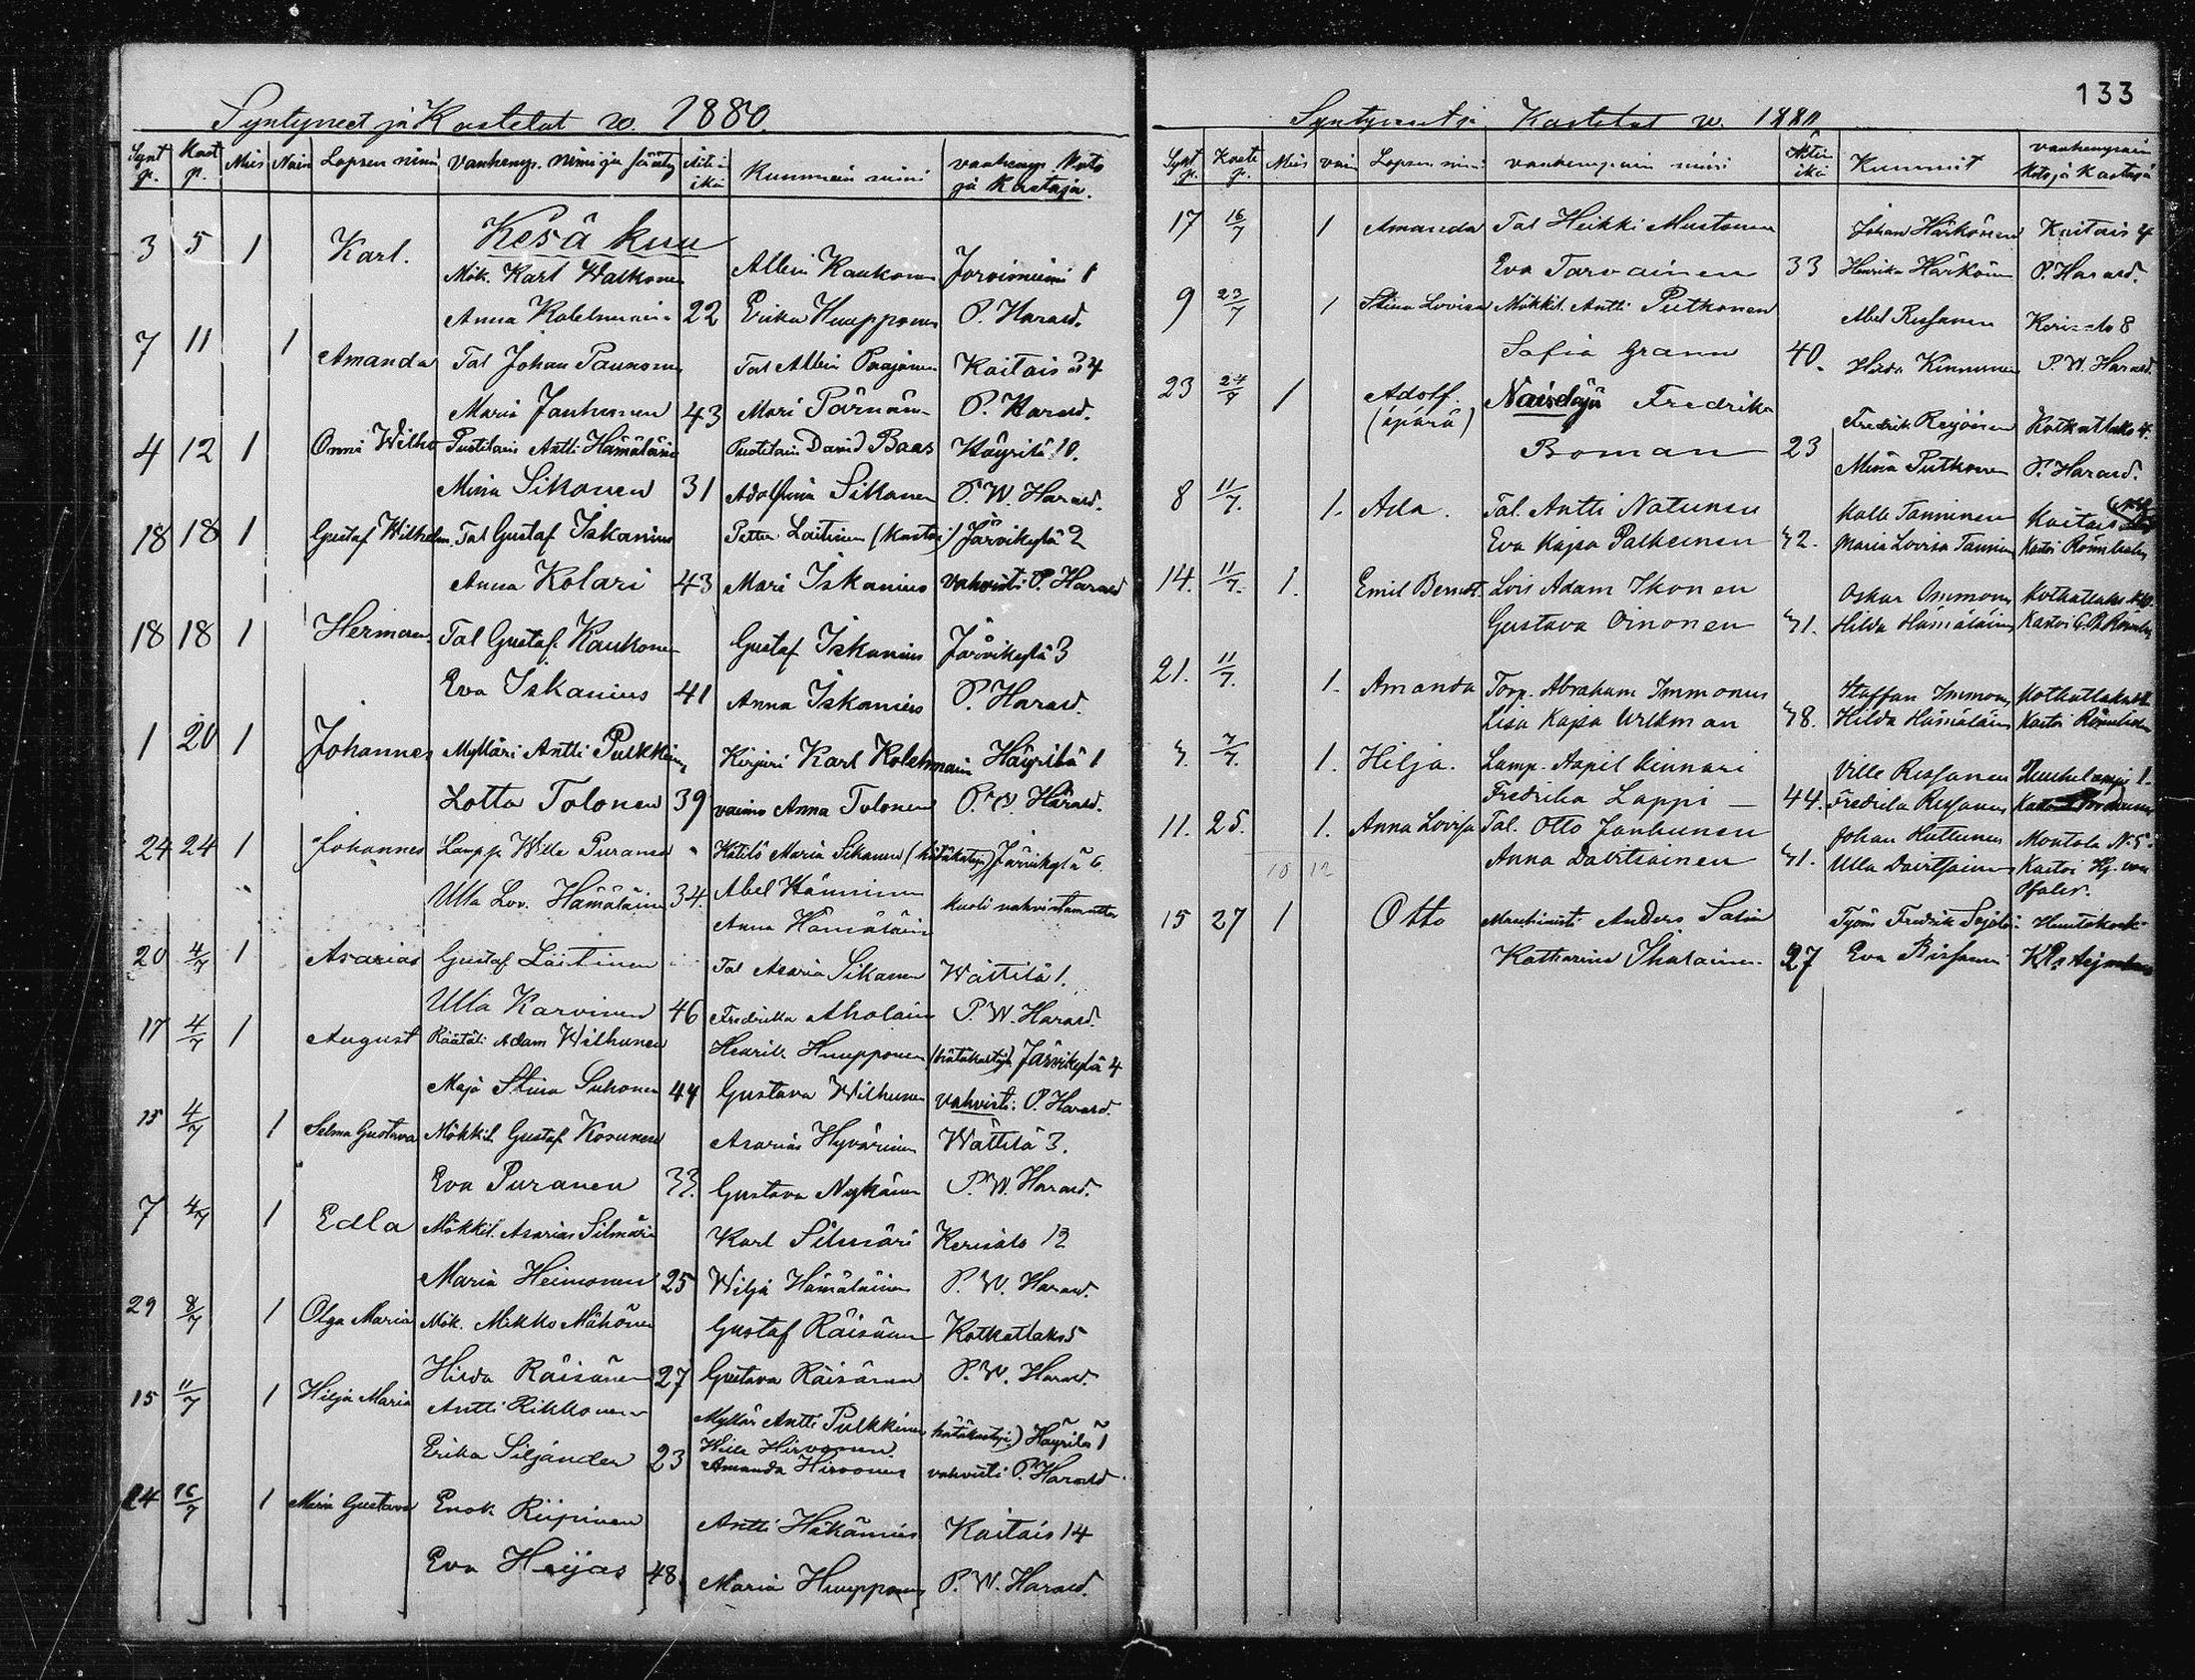 Syntyneet ja Kastetut w. 1880.
Synt p. Kast p. Mies Nain Lapsen nimi Vanhemp. nimi ja sääty Äitin ikä Kummein nimi vanhemp. Koto ja Kastaja.
Kesäkuu
3 5 1 Karl. Mök. Karl Walkonen Albin Kaukonen Jorvinniemi 1
Anna Kolehmain 22 Erika Huupponen P. Harald.
7 11 1 Amanda Tal Johan Paunonen Tal Albin Paajanen Kaitais 24
Maria Janhunen 43 Mari Pärnän P. Harald.
4 12 1 Onni Wilho Puotilain Antti Hämäläin Puotilain David Baas Häyrilä 10.
Miina Sikanen 31 Adolfina Sikanen P. W. Harald.
18 18 1 Gustaf Wilhelm. Tal Gustaf Iskanius Petter Laitinen (Kastoi) Järvikylä 2
Anna Kolari 43 Mari Iskanius vahvisti P. Harald
18 18 1 Herman. Tal Gustaf Kaukonen Gustaf Iskanius Järvikylä 3
Eva Iskanius 41 Anna Iskanius P. Harald.
1 20 1 Johannes Mylläri Antti Pulkkinen Kirjuri Karl Kolehmain Häyrilä 1
Lotta Tolonen 39 vaimo Anna Tolonen P. W. Harald.
24 24 1 Johannes Lampp Wille Puranen Kätilö Maria Sikanen (hätäkastoja) Järvikylä 6.
Ulla Lov. Hämäläin 34. Abel Hänninen kuoli vahvistamatta
Anna Hämäläin
20 4/7 1 Asarias Gustaf Laitinen Tal Asaria Sikanen Wättilä 1.
Ulla Karvinen 46 Fredrika Aholain P. W. Harald.
17 4/7 1 August Räätäli Adam Wilhunen Henrik Huupponen (hätäkastoja) Järvikylä 4
Maja Stina Suhonen 44 Gustava Wilhunen vahvisti: P. Harald.
15 4/7 1 Selma Gustava Mökkil. Gustaf Kosunen Asarias Hyvärinen Wättilä 3.
Eva Puranen 33. Gustava Nykänen P. W. Harald.
7 4/7 1 Edla Mökkil. Asarias Silmäri Karl Silmäri Kerisalo 12
Maria Heimonen 25 Wilja Hämäläinen P. W. Harald.
29 8/7 1 Olga Maria Mök. Mikko Mähönen Gustaf Räisänen Kotkatlaks 5
Hilda Räisänen 27 Gustava Räisänen P. W. Harald.
15 11/7 1 Hilja Maria Antti Rikkonen Mylläri Antti Pulkkinen hätäkastoja) Häyrilä 1
Wille Hirvonen
Erika Siljander 23 Amanda Hirvonen vahvisti P. Harald
24 16/7 1 Maria Gustava Enok Riipinen Antti Häkämies Kaitais 14
Eva Heijas 48. Maria Huupponen P. W. Harald.
133
Syntyneet ja Kastetut w. 1880
Synt p. Kaste p. Mies vain Lapsen nimi vanhempain nimi Äitin ikä Kummit vanhempain Koto ja Kastaja
17 16/7 1 Amanda Tal Heikki Mustonen Johan Härkönen Kaitais 4
Eva Tarvainen 33 Henrika Härkönen P. Harald.
9 23/7 1 Stina Lovisa Mökkil. Antti Putkonen Abel Russanen Kerisalo 8
Sofia Grann 40. Hilda Kinnunen P. W. Harald.
23 24/7 1 Adolf. Naisdäjä Fredrika Fredrik Reijonen Kotkatlaks 4.
(äpärä) Boman 23 Mina Putkonen P. Harald.
8 11/7. 1. Ada. Tal. Antti Natunen Kalle Tanninen Kaitais
Eva Kajsa Patheinen 42. Maria Lovisa Tanninen Kastoi Rönnholm
14. 11/7. 1. Emil Berndt. Lois Adam Ikonen Oskar Immonen Kotkatlaks
Gustava Oinonen 41. Hilda Hämäläinen Kastoi
21. 11/7. 1. Amanda Torp. Abraham Immonen Staffan Immonen Kotkatlaks
Lisa Kajsa Wekman 48. Hilda Hämäläinen Kastoi Rönnholm
7. 7/7. 1. Hilja. Lamp. Aapil Kinnari Ville Russanen 1.
Fredrika Lappi — 44. Fredrika Russanen
11. 25. 1. Anna Lovisa Tal. Otto Janhunen Johan Huttunen Montola N. 5.
10 12 Anna Davitsainen 41. Ulla Davitsainen Kastoi Hj. von
Pfaler.
15 27 1 Otto Maschinisti Anders Salin Tyom Fredrik
Katharina Ihalainen 27 Eva